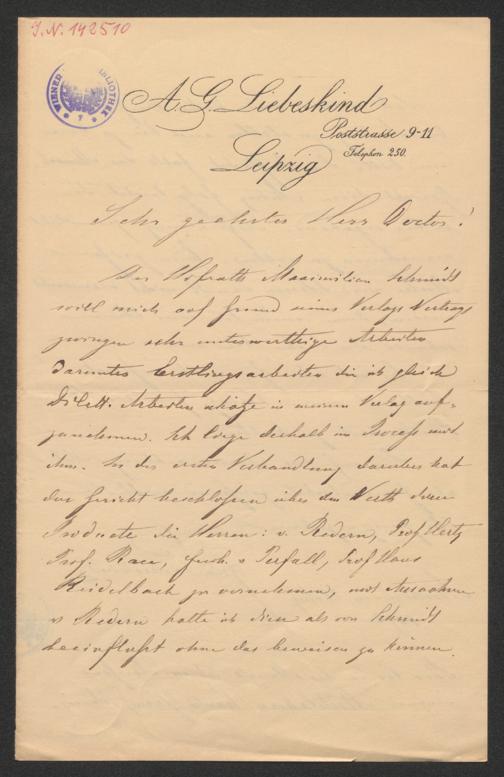 J. N. 142510
WIENER BIBLIOTHEK
A. G. Liebeskind
Poststrasse 9-11
Leipzig
Telephon 250.
Sehr geehrter Herr Doctor!
Der Hofrath Maximilian Schmidt
will mich auf Grund eines Verlags Vertrags
zwingen sehr unterwerthige Arbeiten
darunter Erstlingsarbeiten die ich gleich
Dilett. Arbeiten schätze in meinen Verlag auf-
zunehmen. Ich liege deshalb im Process mit
ihm. In der ersten Verhandlung darüber hat
das Gericht beschlossen über den Werth dieser
Producte die Herren: v. Redern, Prof Hertz
Prof. , v Perfall, Prof Hans
Reidelbach zu vernehmen, mit Ausnahme
v Redern halte ich diese als von Schmidt
beeinflusst ohne das beweisen zu können.